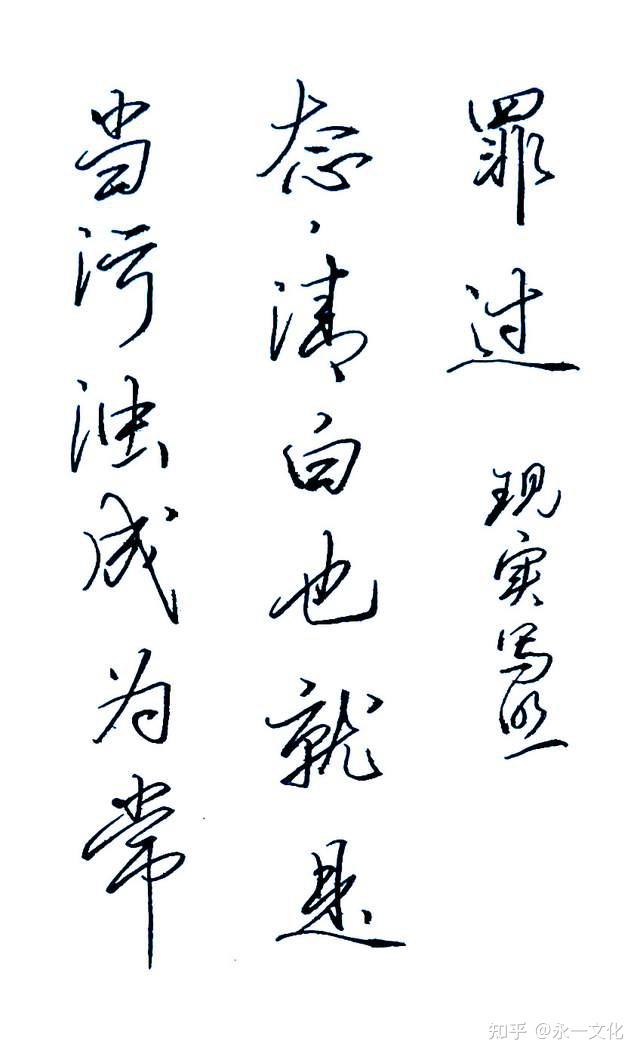 当污浊成为常
态，清白也就是
罪过
现实写照
知乎 @永一文化